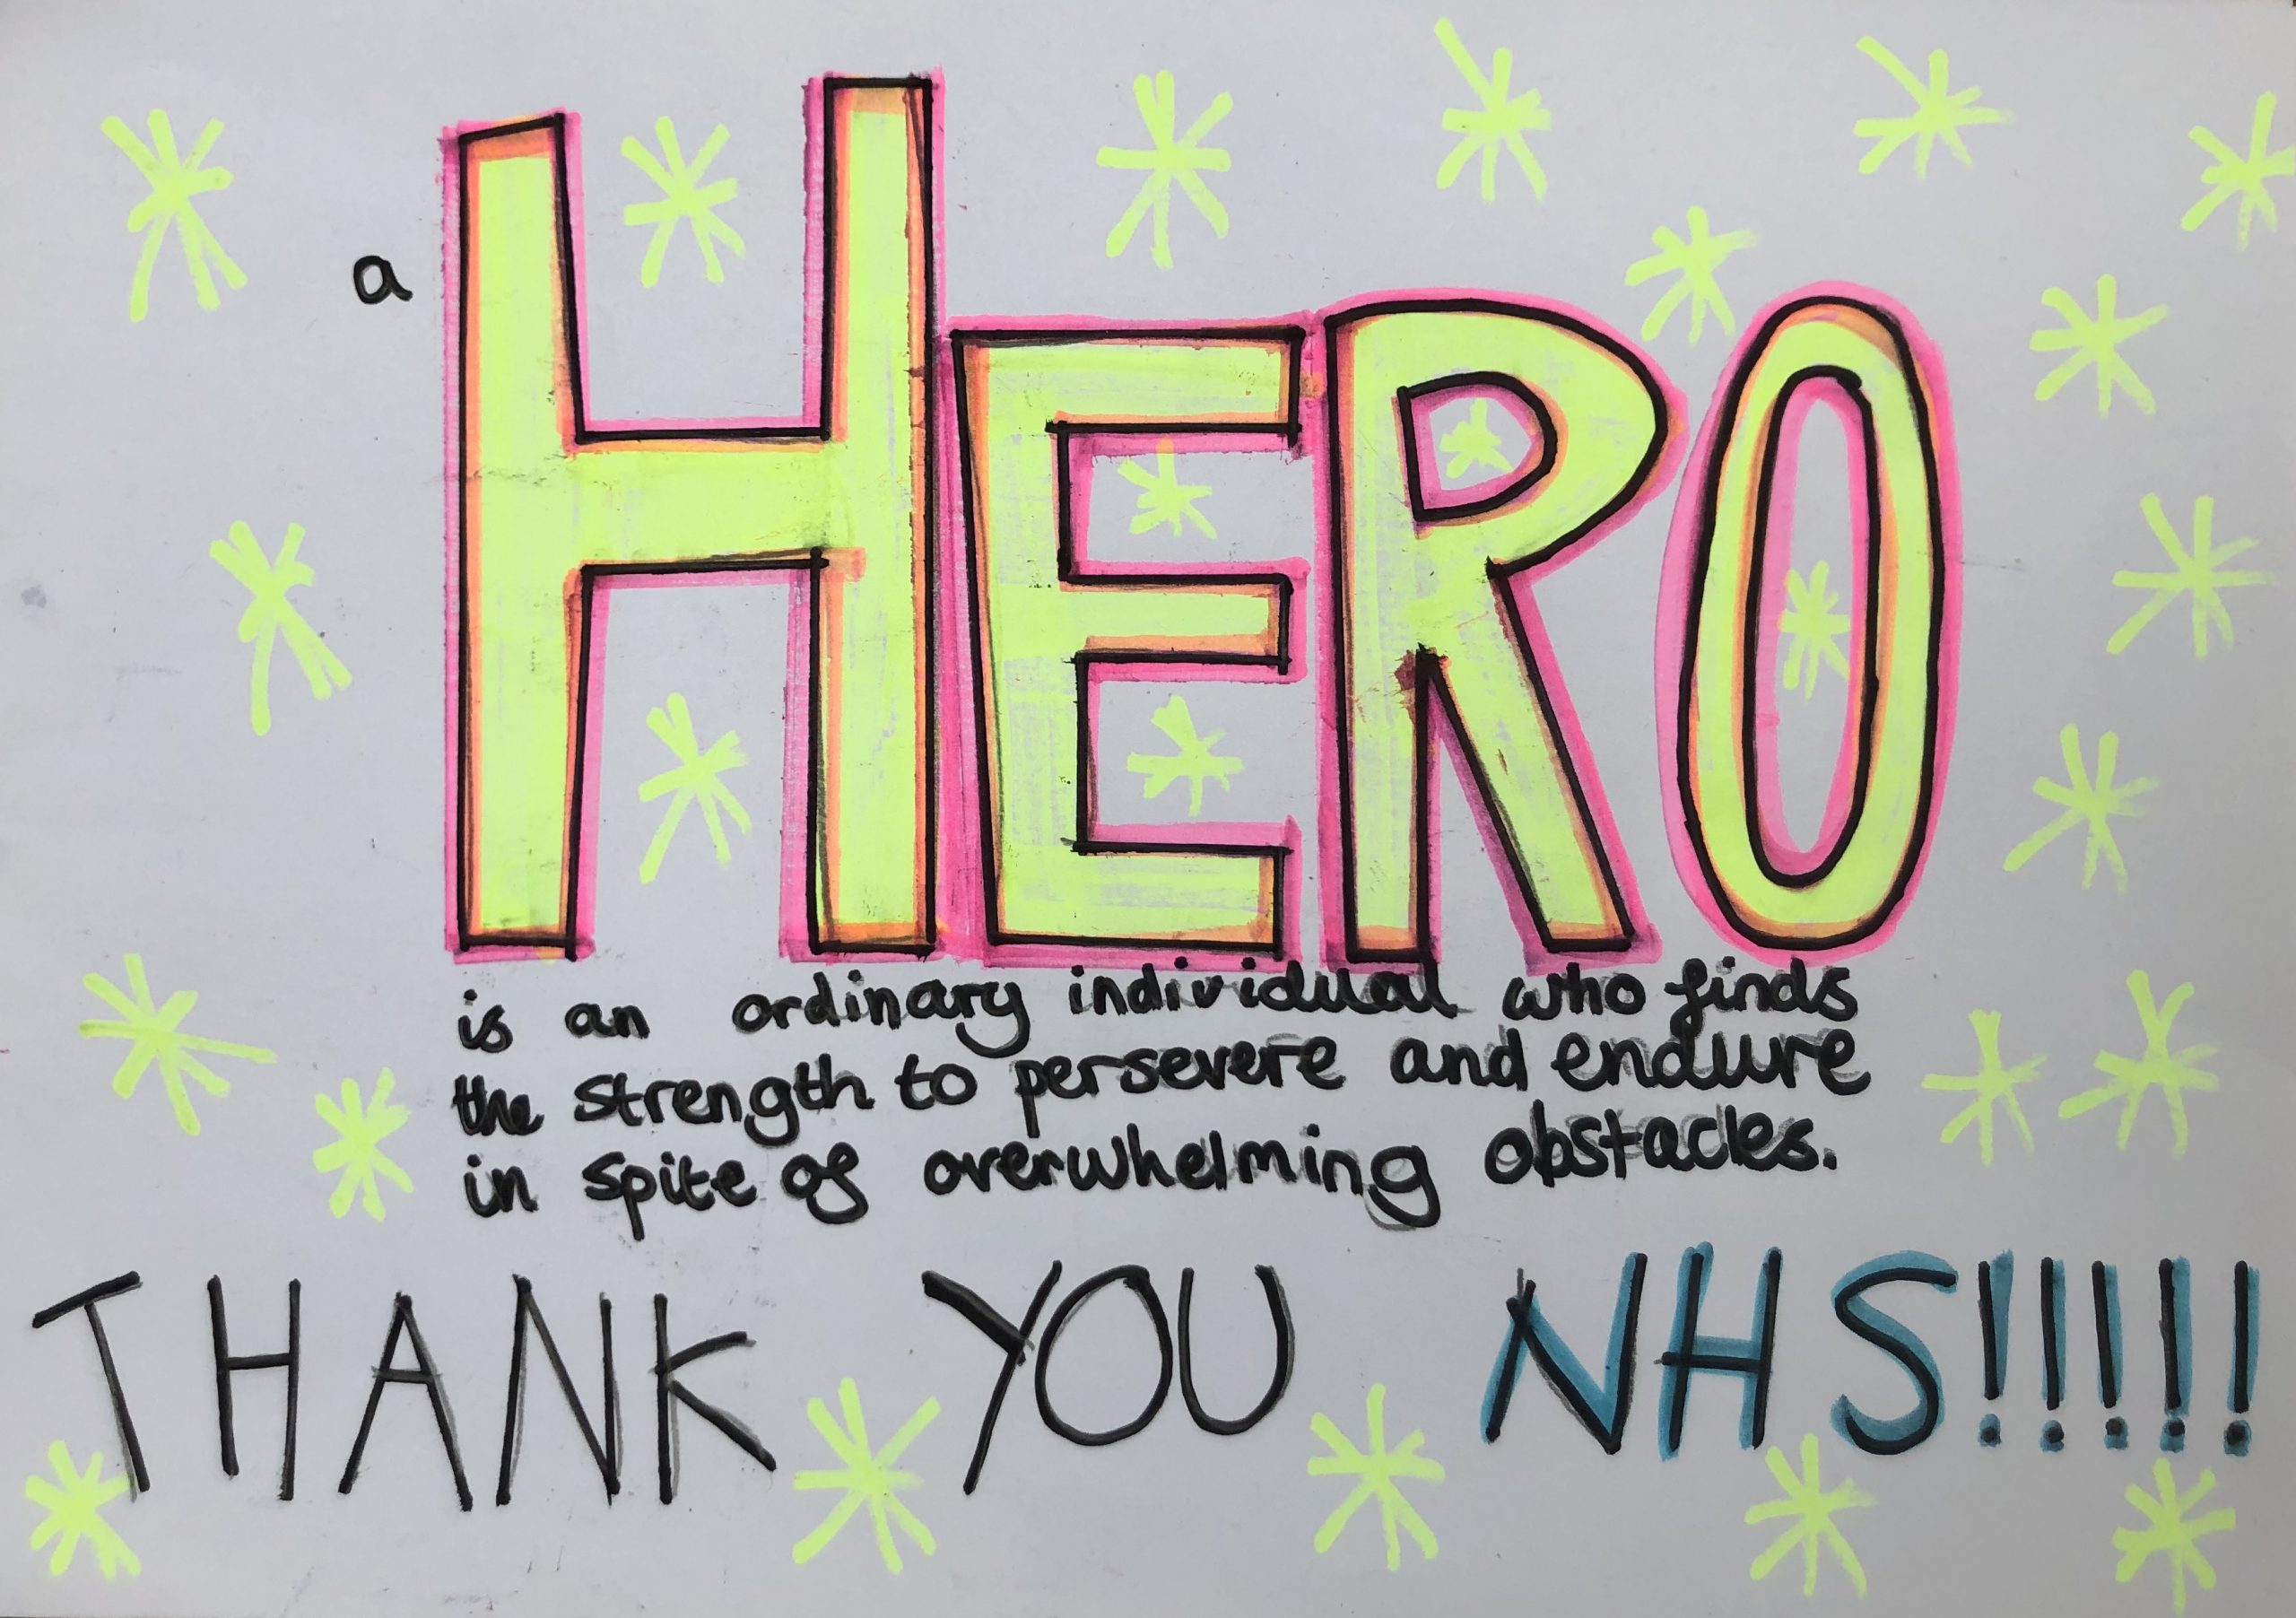 a HERO
is an ordinary individual who finds
the strength to persevere and endure
in spite of overwhelming obstacles.
THANK YOU NHS!!!!!